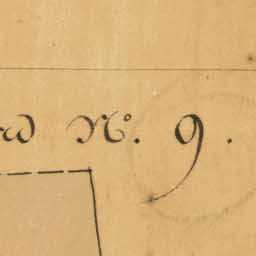 rd No. 9.